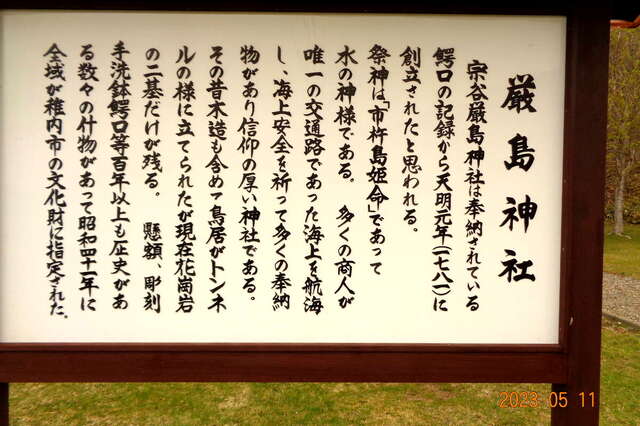 厳島神社
宗谷厳島神社は奉納されている
鰐口の記録から天明元年(一七八一)に
創立されたと思われる。
祭神は「市杵島姫命」であって
水の神様である。 多くの商人が
唯一の交通路であった海上を航海
し、海上安全を祈って多くの奉納
物があり信仰の厚い神社である。
その昔木造も含めて鳥居がトンネ
ルの様に立てられたが現在花崗岩
の二基だけが残る。 懸額、彫刻
手洗鉢鰐口等百年以上も歴史があ
る数々の什物があって昭和四十一年に
全域が稚内市の文化財に指定された。
2023 05 11